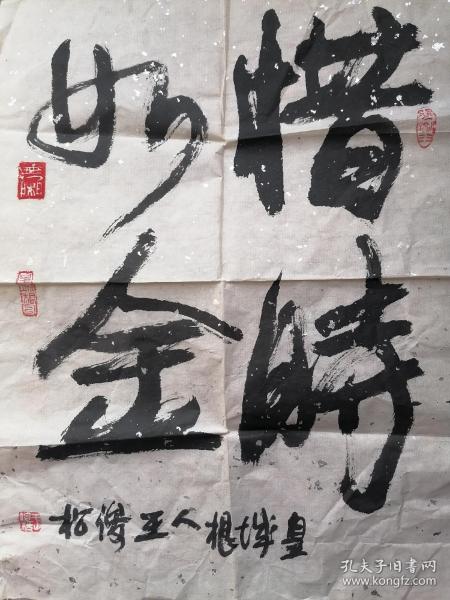 惜時
如金
皇城根人王倚柏
孔夫子旧书网
www.kongfz.com